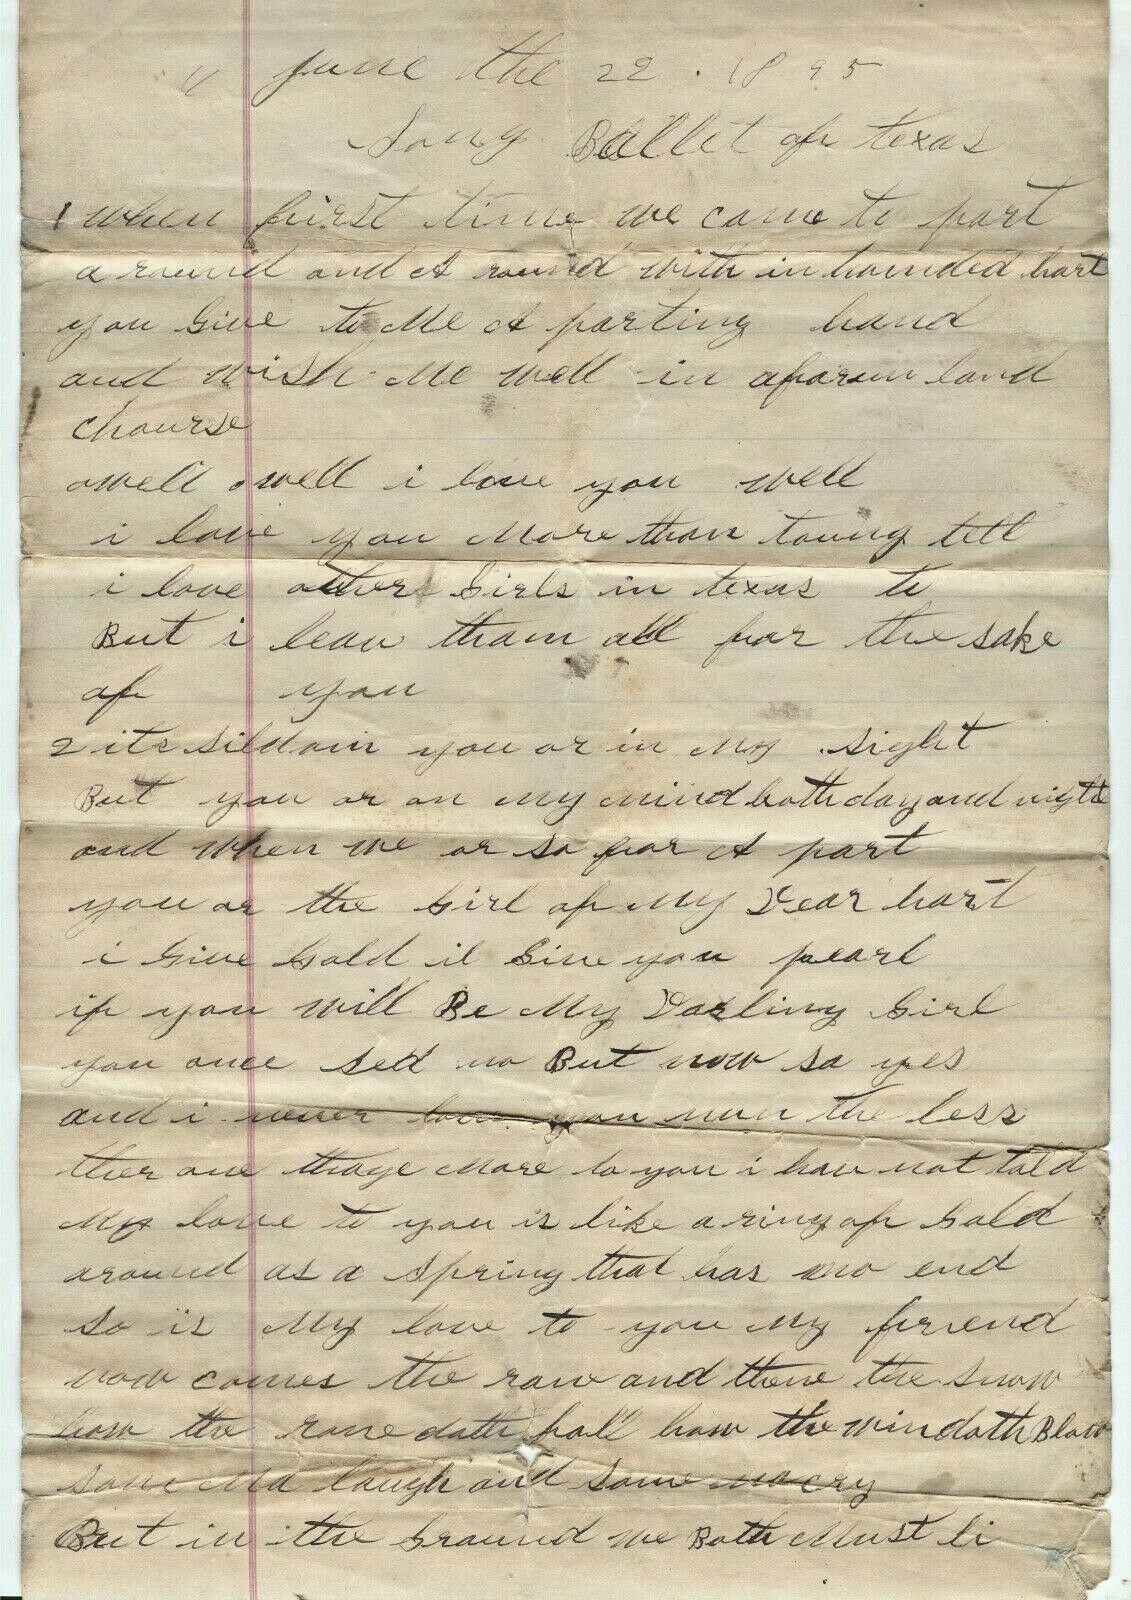 June the 22 . 1895
Song Ballet of texas
1 when first time we came to part
a round and A round with in hounded hart
you Give to Me A parting hand
and wish Me well in aforun land
Chourse
owell owell i love you well
i love you More than toung tell
i love others Girls in texas to
But i leav tham all for the sake
of you
2 its sildom you or in My sight
But you or on My Mind both day and night
and when we or so far A part
you or the Girl of My Dear hart
i Give Gold il Give you pearl
if you will Be My Darling Girl
you once sed no But now so yes
and i never love you nun the less
ther one more to you i hav not told
My love to you is like a ring of Gold
around as a spring that has no end
so is My love to you My friend
now comes the rane and thene the snow
how the rane doth fall how the wind doth Blow
some Ma laugh and some Ma cry
But in the Ground we Both Must li